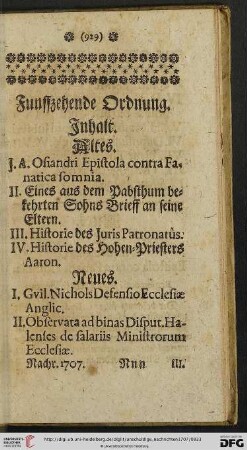 (929)
Funffzehende Ordnung.
Inhalt.
Altes.
I. A. Osiandri Epistola contra Fa-
natica somnia.
II. Eines aus dem Pabsthum be-
kehrten Sohns Brieff an seine
Eltern.
III. Historie des Juris Patronatûs.
IV. Historie des Hohen-Priesters
Aaron.
Neues.
I. Gvil. Nichols Defensio Ecclesiæ
Anglic.
II. Observata ad binas Disput. Ha-
lenses de salariis Ministrorum
Ecclesiæ.
Nachr. 1707. Nnn III.
UNIVERSITÄTS-BIBLIOTHEK HEIDELBERG
DFG